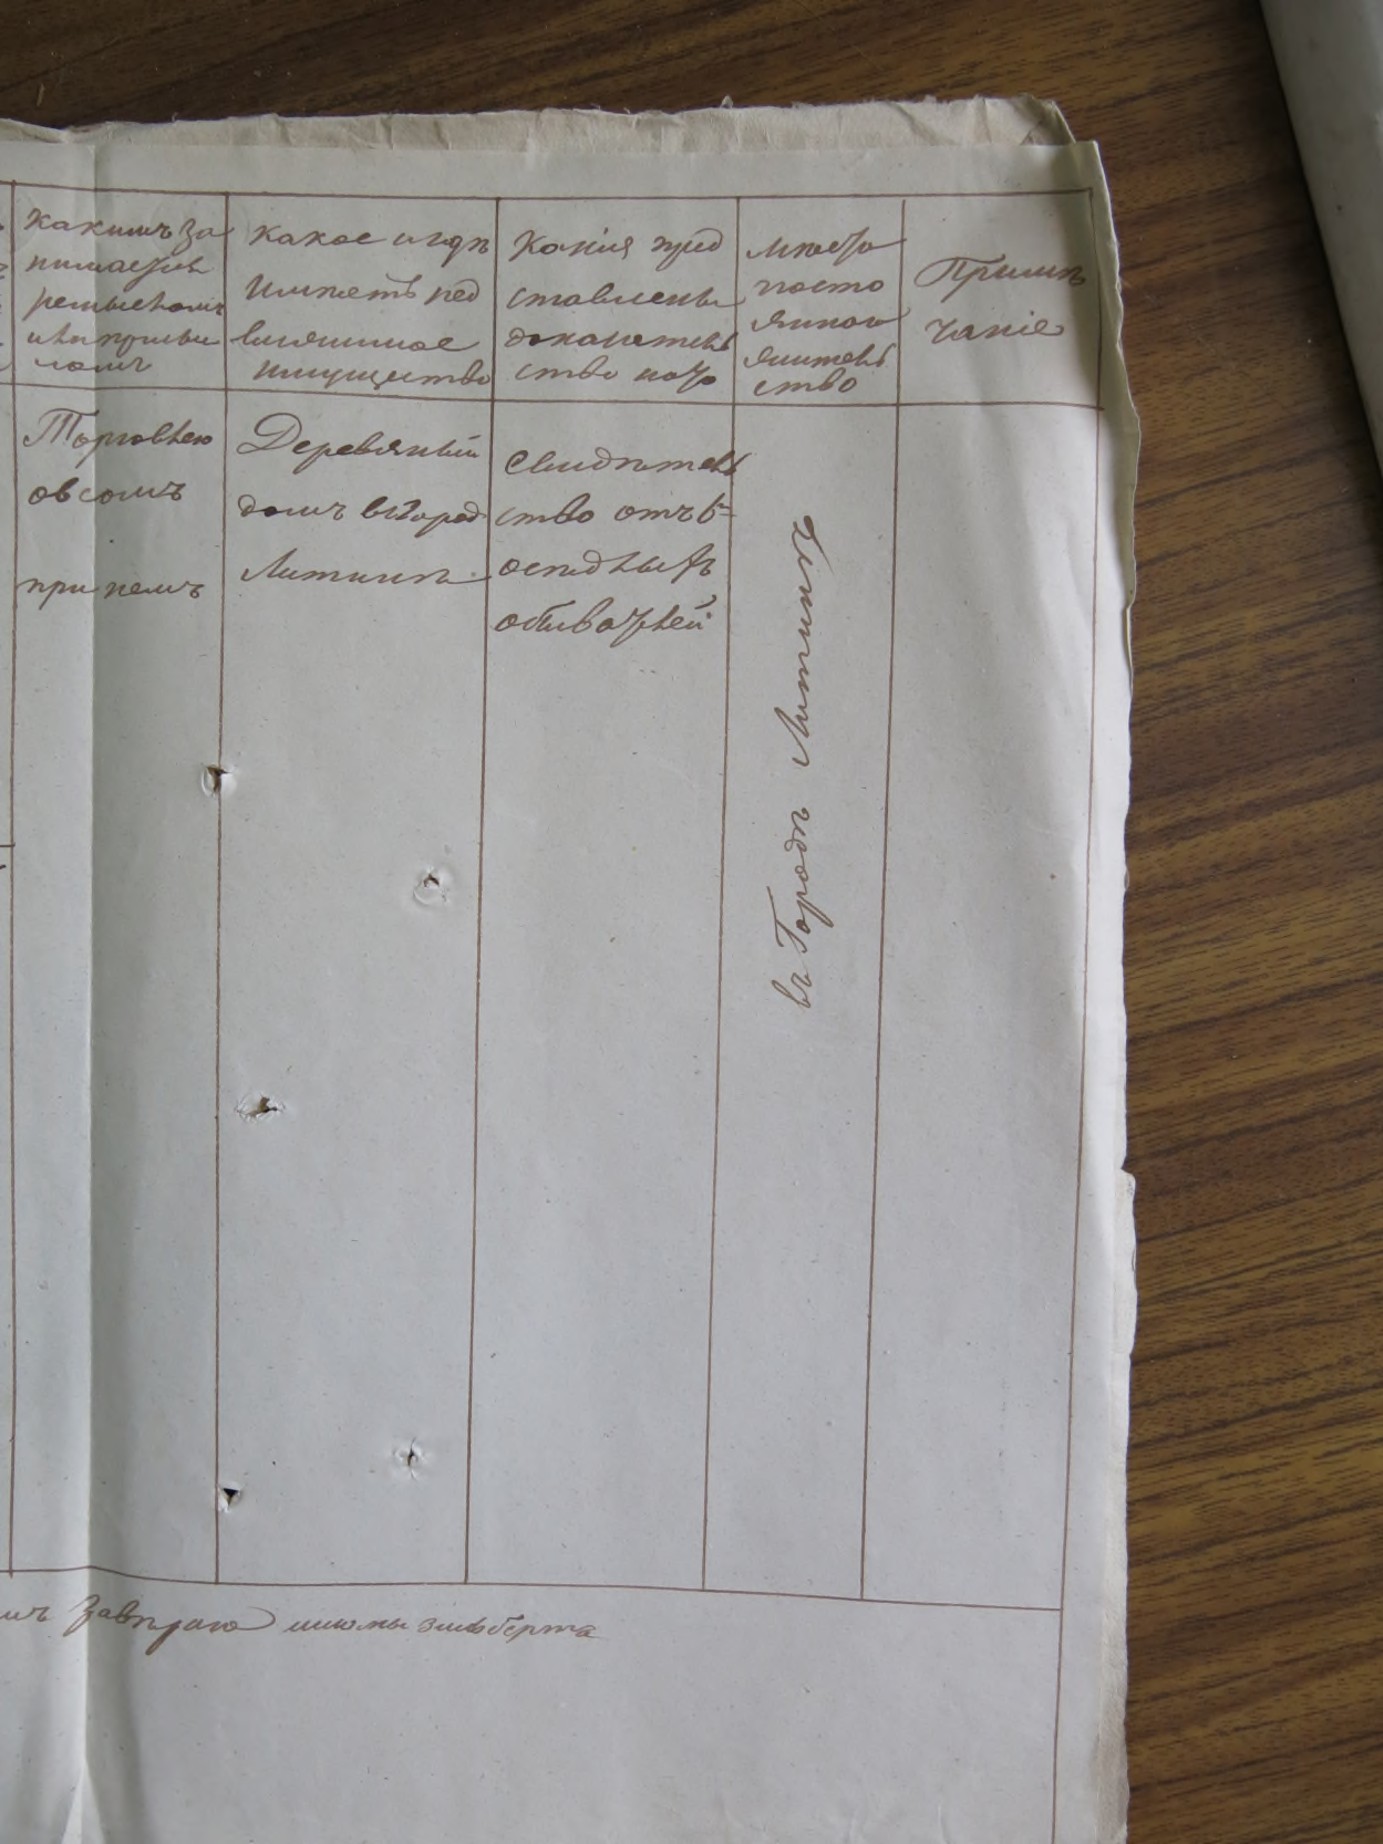 какимъ за
нимается
ремысломъ
и капиты
ломъ
какое и гдѣ
имѣетъ нед
вижимое
имущество
Какія пред
ставлены
доказатель
ство на то
мѣсто
посто
яннаго
жительс
ство
Примѣ
чаніе
Торговлею
овсомъ
при немъ
Деревяный
домъ въ город
Литинѣ
Свидѣтель
ство отъ 6=
осѣдлыхъ
обывателей
въ Городѣ Литинѣ
завѣряю шломы зильберта